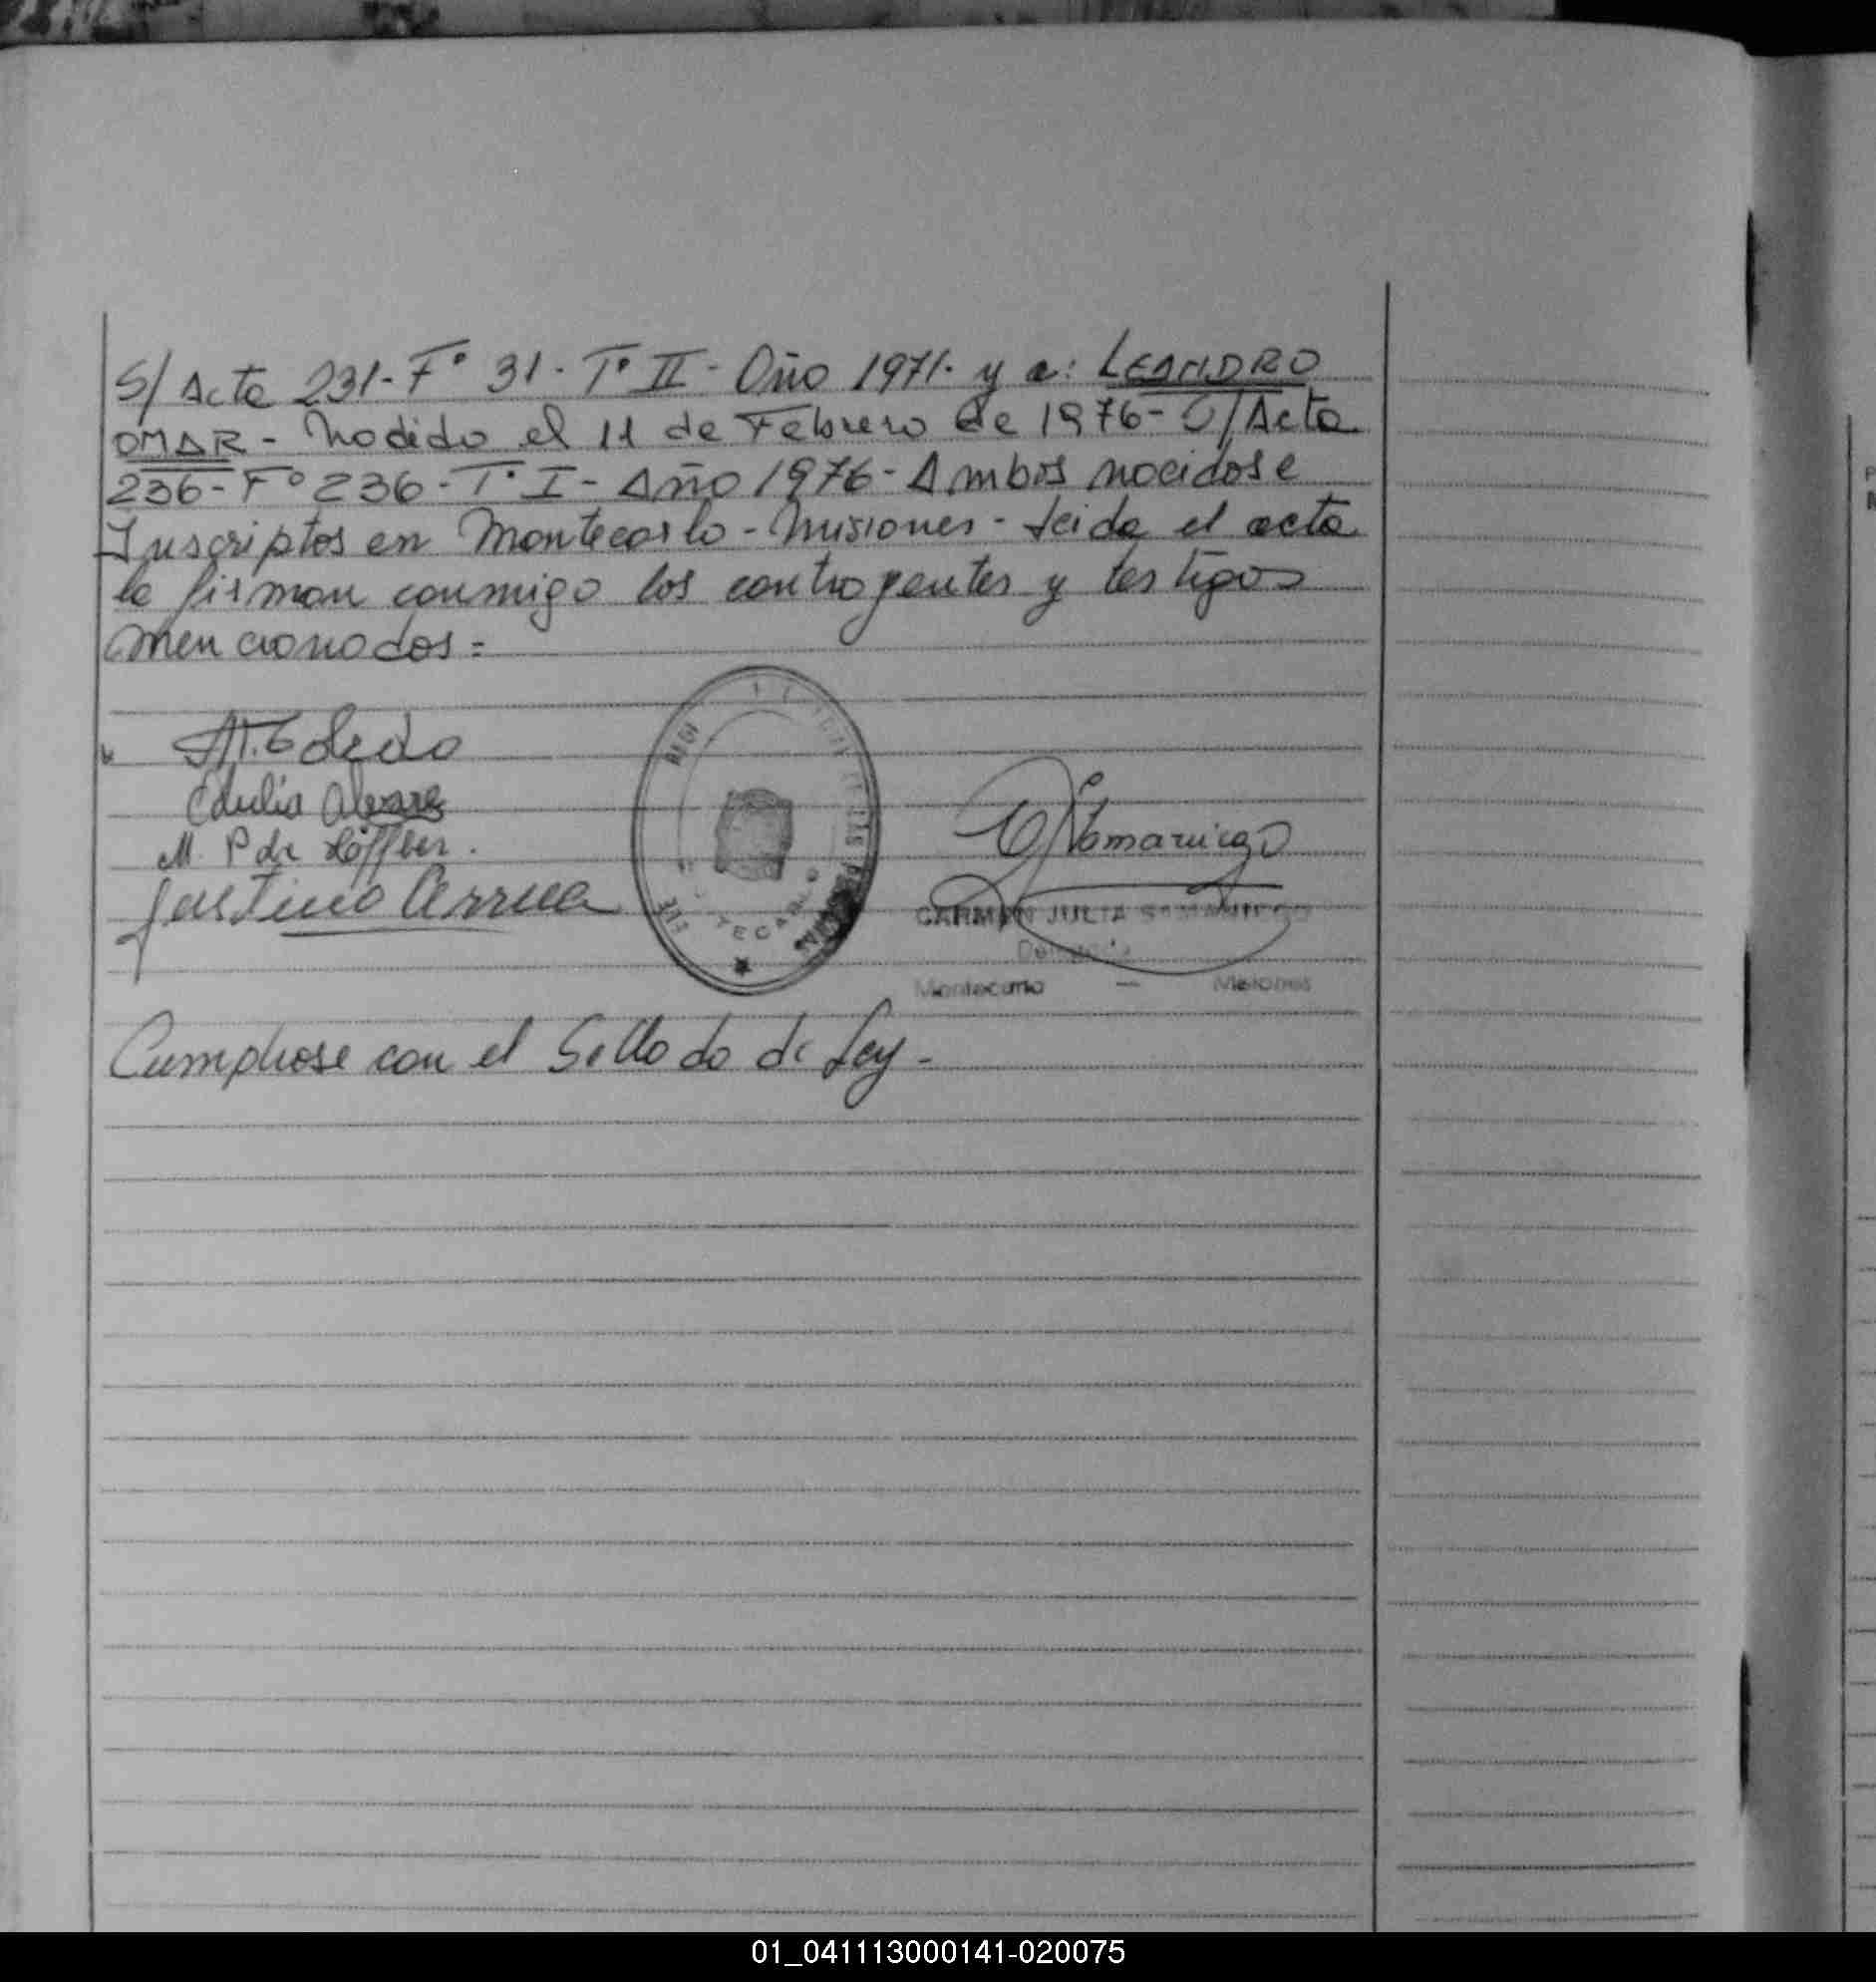 S/ Acta 231- F° 31- T° II- Año 1971- y a: LEANDRO
OMAR - Nacido el 11 de Febrero de 1976- S/Acta
236- F° 236- T° I- Año 1976- Ambos nacidos e
Inscriptos en Montecarlo - Misiones - Leida el acta
la firman conmigo los contrayentes y testigos
mencionados=
Toledo
Edulia Alvarez
M. P de Löffler.
Justino Arrua
Samaniego
CARMEN JULIA SAMANIEGO
Delegada
Montecarlo — Misiones
REGI
Cumpliose con el Sellado de Ley-
01_041113000141-020075